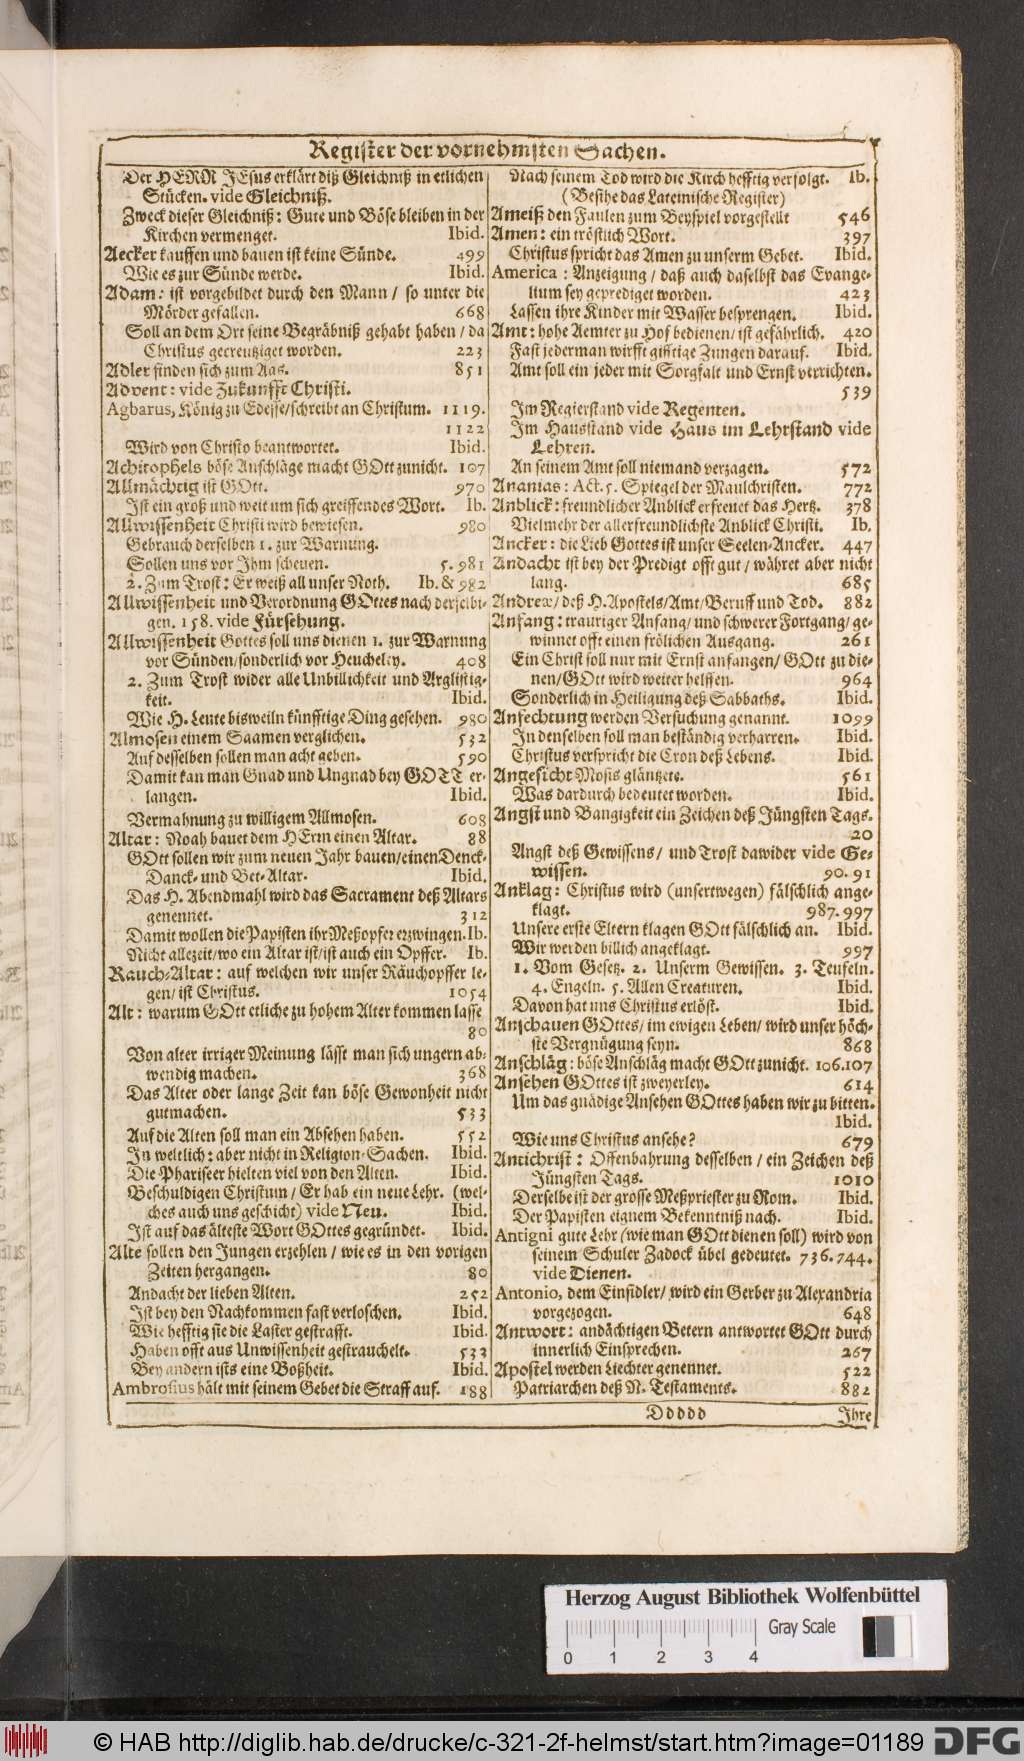 Register der vornehmsten Sachen.
Der HERR JEsus erklärt diß Gleichniß in etlichen
Stücken. vide Gleichniß.
Zweck dieser Gleichniß: Gute und Böse bleiben in der
Kirchen vermenget. Ibid.
Aecker kauffen und bauen ist keine Sünde. 499
Wie es zur Sünde werde. Ibid.
Adam: ist vorgebildet durch den Mann / so unter die
Mörder gefallen. 668
Soll an dem Ort seine Begräbniß gehabt haben / da
Christus gecreutziget worden. 223
Adler finden sich zum Aas. 851
Advent: vide Zukunfft Christi.
Agbarus, König zu Edesse/schreibt an Christum. 1119.
1122
Wird von Christo beantwortet. Ibid.
Achitophels böse Anschläge macht GOtt zunicht. 107
Allmächtig ist GOtt. 970
Ist ein groß und weit um sich greiffendes Wort. Ib.
Allwissenheit Christi wird bewiesen. 980
Gebrauch derselben 1. zur Warnung.
Sollen uns vor Ihm scheuen. 5.981
2. Zum Trost: Er weiß all unser Noth. Ib. & 982
Allwissenheit und Verordnung GOttes nach derselbi-
gen. 158. vide Fürsehung.
Allwissenheit Gottes soll uns dienen 1. zur Warnung
vor Sünden/sonderlich vor Heucheley. 408
2. Zum Trost wider alle Unbillichkeit und Arglistig-
keit. Ibid.
Wie H. Leute bisweiln künfftige Ding gesehen. 980
Almosen einem Saamen verglichen. 532
Auf desselben sollen man acht geben. 590
Damit kan man Gnad und Ungnad bey GOTT er-
langen. Ibid.
Vermahnung zu willigem Allmosen. 608
Altar: Noah bauet dem HErrn einen Altar. 88
GOtt sollen wir zum neuen Jahr bauen/einen Denck-
Danck- und Bet-Altar. Ibid.
Das H. Abendmahl wird das Sacrament deß Altars
genennet. 312
Damit wollen die Papisten ihr Meßopfer erzwingen. Ib.
Nicht allezeit/wo ein Altar ist/ist auch ein Opffer. Ib.
Rauch-Altar: auf welchen wir unser Räuchopffer le-
gen/ist Christus. 1054
Alt: warum GOtt etliche zu hohem Alter kommen lasse
80
Von alter irriger Meinung lässt man sich ungern ab-
wendig machen. 368
Das Alter oder lange Zeit kan böse Gewonheit nicht
gutmachen. 533
Auf die Alten soll man ein Absehen haben. 552
In weltlich: aber nicht in Religion-Sachen. Ibid.
Die Phariseer hielten viel von den Alten. Ibid.
Beschuldigen Christum / Er hab ein neue Lehr. (wel-
ches auch uns geschicht) vide Neu. Ibid.
Ist auf das älteste Wort GOttes gegründet. Ibid.
Alte sollen den Jungen erzehlen / wie es in den vorigen
Zeiten hergangen. 80
Andacht der lieben Alten. 252
Ist bey den Nachkommen fast verloschen. Ibid.
Wie hefftig sie die Laster gestrafft. Ibid.
Haben offt aus Unwissenheit gestrauchelt. 533
Bey andern ists eine Boßheit. Ibid.
Ambrosius hält mit seinem Gebet die Straff auf. 188
Nach seinem Tod wird die Kirch hefftig verfolgt. Ib.
(Besihe das Lateinische Register)
Ameiß den Faulen zum Beyspiel vorgestellt 546
Amen: ein tröstlich Wort. 397
Christus spricht das Amen zu unserm Gebet. Ibid.
America: Anzeigung / daß auch daselbst das Evange-
lium sey geprediget worden. 423
Lassen ihre Kinder mit Wasser besprengen. Ibid.
Amt: hohe Aemter zu Hof bedienen / ist gefährlich. 420
Fast jederman wirfft gifftige Zungen darauf. Ibid.
Amt soll ein jeder mit Sorgfalt und Ernst verrichten.
539
Im Regierstand vide Regenten.
Im Hausstand vide Haus im Lehrstand vide
Lehren.
An seinem Amt soll niemand verzagen. 572
Ananias: Act. 5. Spiegel der Maulchristen. 772
Anblick: freundlicher Anblick erfreuet das Hertz. 378
Vielmehr der allerfreundlichste Anblick Christi. Ib.
Ancker: die Lieb Gottes ist unser Seelen-Ancker. 447
Andacht ist bey der Predigt offt gut / währet aber nicht
lang. 685
Andreæ/ deß H. Apostels/Amt/Beruff und Tod. 882
Anfang: trauriger Anfang/und schwerer Fortgang/ge-
winnet offt einen frölichen Ausgang. 261
Ein Christ soll nur mit Ernst anfangen/ GOtt zu die-
nen/GOtt wird weiter helffen. 964
Sonderlich in Heiligung deß Sabbaths. Ibid.
Anfechtung werden Versuchung genannt. 1099
In denselben soll man beständig verharren. Ibid.
Christus verspricht die Cron deß Lebens. Ibid.
Angesicht Mosis gläntzete. 561
Was dardurch bedeutet worden. Ibid.
Angst und Bangigkeit ein Zeichen deß Jüngsten Tags.
20
Angst deß Gewissens / und Trost dawider vide Ge-
wissen. 90.91
Anklag: Christus wird (unsertwegen) fälschlich ange-
klagt. 987.997
Unsere erste Eltern klagen GOtt fälschlich an. Ibid.
Wir werden billich angeklagt. 997
1. Vom Gesetz. 2. Unserm Gewissen. 3. Teufeln.
4. Engeln. 5. Allen Creaturen. Ibid.
Davon hat uns Christus erlöst. Ibid.
Anschauen GOttes / im ewigen Leben / wird unser höch-
ste Vergnügung seyn. 868
Anschläg: böse Anschläg macht GOtt zunicht. 106.107
Ansehen GOttes ist zweyerley. 614
Um das gnädige Ansehen GOttes haben wir zu bitten.
Ibid.
Wie uns Christus ansehe? 679
Antichrist: Offenbahrung desselben / ein Zeichen deß
Jüngsten Tags. 1010
Derselbe ist der grosse Meßpriester zu Rom. Ibid.
Der Papisten eignem Bekenntniß nach. Ibid.
Antigni gute Lehr (wie man GOtt dienen soll) wird von
seinem Schuler Zadock übel gedeutet. 736.744.
vide Dienen.
Antonio, dem Einsidler / wird ein Gerber zu Alexandria
vorgezogen. 648
Antwort: andächtigen Betern antwortet GOtt durch
innerlich Einsprechen. 267
Apostel werden Liechter genennet. 522
Patriarchen deß N. Testaments. 882
Ddddd Ihre
Herzog August Bibliothek Wolfenbüttel
Gray Scale
0 1 2 3 4
© HAB http://diglib.hab.de/drucke/c-321-2f-helmst/start.htm?image=01189 DFG